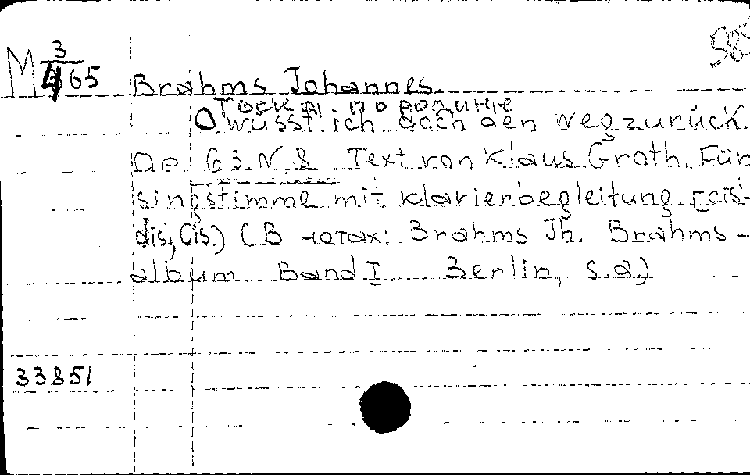 585
M 3/465 Brahms Johannes.
Тоска по родине
O wüsst ich doch den Weg zurück.
Op. 63. N. 8 Text von Klaus Groth. Für
singstimme mit klavierbegleitung. [cis-
dis, Cis.) (В нотах: Brahms Jh. Brahms-
album Band I Berlin, s.a.)
33851